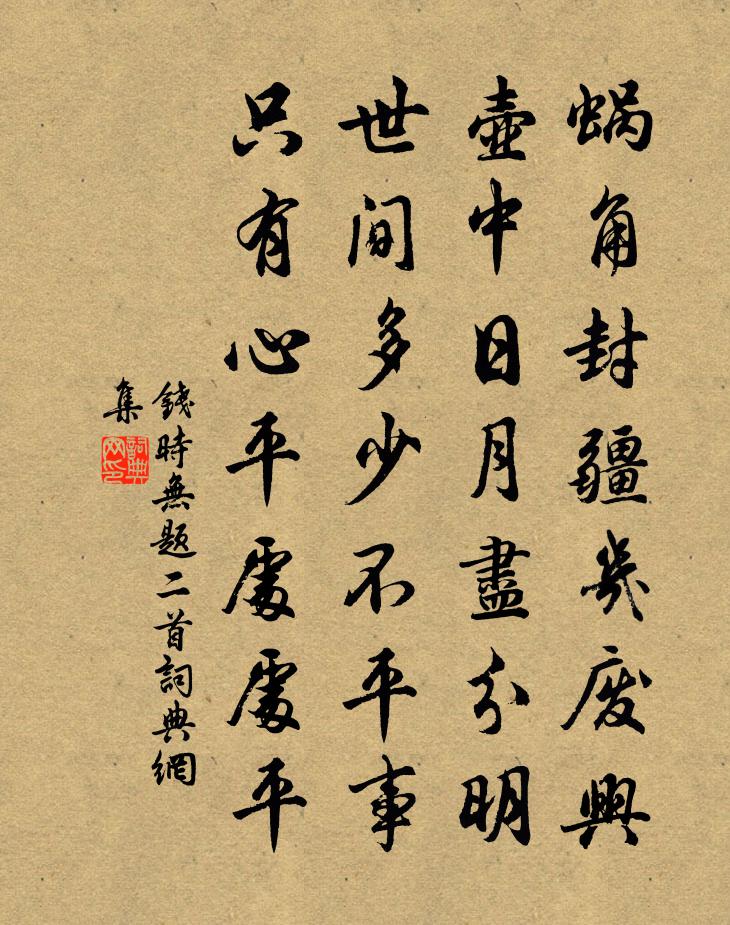 蝸角封疆幾廢興
壺中日月盡分明
世間多少不平事
只有心平處處平
錢時無題二首詞典網
集
詞典
网印